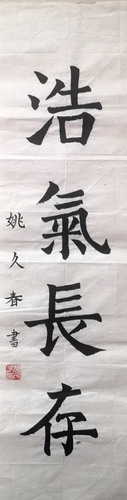 浩氣長存
姚久春書